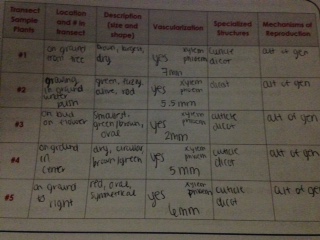 Transect Sample Plants
Location and # in transect
Description (size and shape)
Vascularization
Specialized Structures
Mechanisms of Reproduction
#1
on ground
from tree
brown,
dry
yes
xylem
phloem
7mm
cuticle
dicot
alt of gen
#2
in ground
under
green,
oval, red
yes
xylem
phloem
5.5mm
dicot
alt of gen
#3
on bud
on flower
smallest,
green/brown,
oval
yes
xylem
phloem
2mm
cuticle
dicot
alt of gen
#4
on ground
in
center
dry, circular
brown/green
yes
xylem
phloem
5mm
cuticle
dicot
alt of gen
#5
on ground
to
right
red, oval,
symmetrical
yes
xylem
phloem
6mm
cuticle
dicot
alt of gen